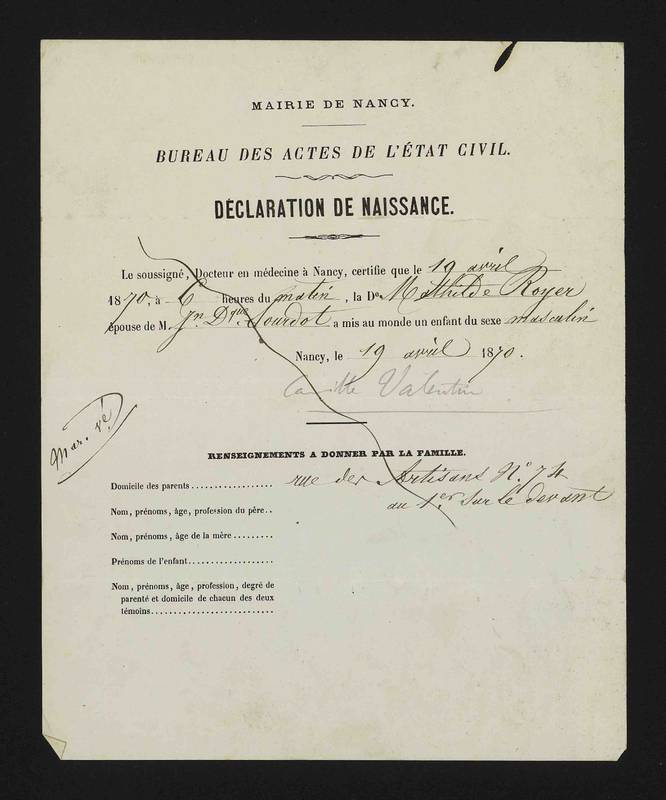 MAIRIE DE NANCY.
BUREAU DES ACTES DE L'ÉTAT CIVIL.
DÉCLARATION DE NAISSANCE.
Le soussigné, Docteur en médecine à Nancy, certifie que le 19 avril
1870, à 6 heures du matin, la De Mathilde Royer
épouse de M. Jn Dque Sourdot a mis au monde un enfant du sexe masculin
Nancy, le 19 avril 1870.
Camille Valentin
Mar. vé
RENSEIGNEMENTS A DONNER PAR LA FAMILLE.
Domicile des parents .................. rue des Artisans No. 74
au 1er sur le devant
Nom, prénoms, âge, profession du père..
Nom, prénoms, âge de la mère.........
Prénoms de l'enfant...................
Nom, prénoms, âge, profession, degré de
parenté et domicile de chacun des deux
témoins...........................